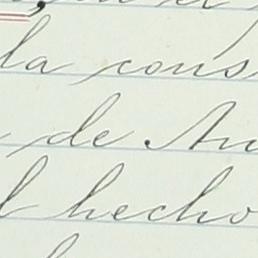 la cons
de Au
l hecho